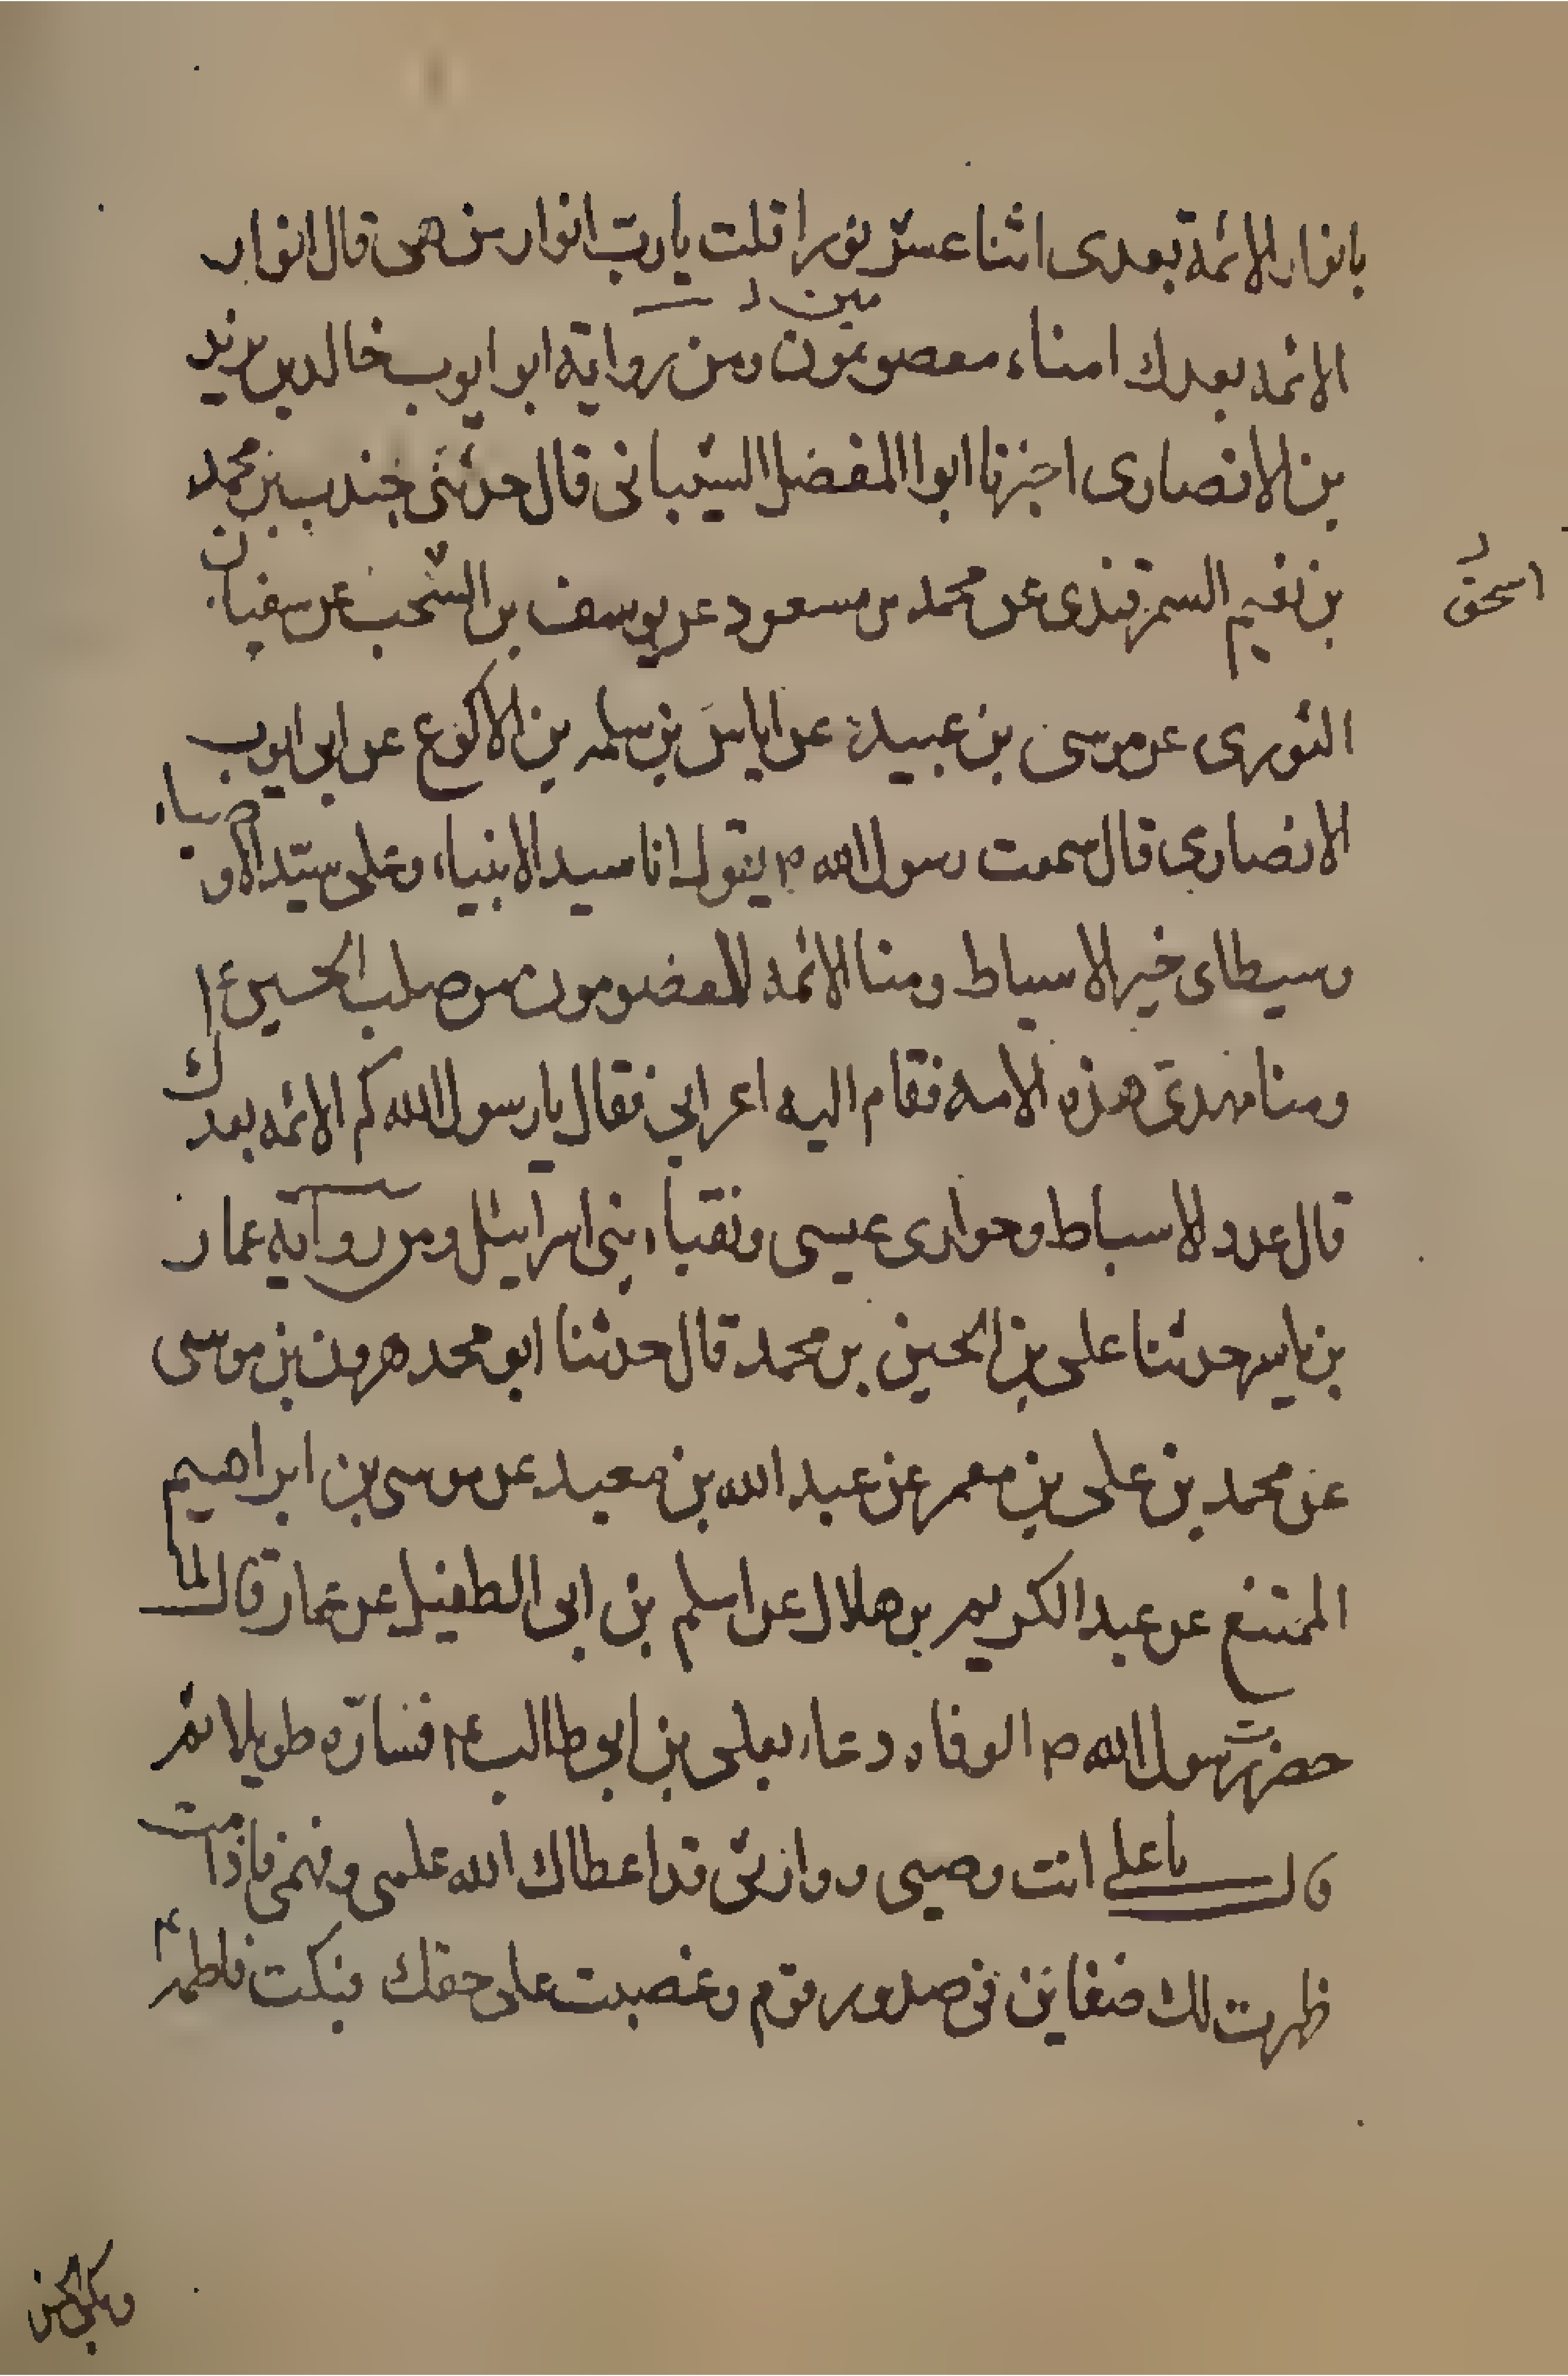 بانوار الائمة بعدى اثنا عشر نورا قلت يا ربّ انوار من هى قال انوار
الائمه بعدك امناء معصومون ومن رواية ابو ايوب خالد بن يزيد
مين د
بن الانصارى اخبرنا ابوا المفضل الشيبانى قال حدثنى جندب بن محمد
بن نعيم السمرقندى عن محمد بن مسعود عن يوسف بن السخب عن سفيان
اسحق د
الثورى عن موسى بن عبيدة عن اياس بن سلمه بن الاكوع عن ابى ايوب
الانصارى قال سمعت رسول الله ص يقول انا سيد الانبياء وعلى سيّد الاوصياء
وسبطاى خير الاسباط ومنا الائمه المعصومون من صلب الحسين ع
ومنا مهدىّ هذه الامه فقام اليه اعرابى فقال يا رسول الله كم الائمه بعدك
قال عدد الاسباط وحوارى عيسى ونقباء بنى اسرائيل ومن رواية عمار
بن ياسر حدثنا على بن الحسين بن محمد قال حدثنا ابو محمد هرون بن موسى
عن محمد بن على بن معمر عن عبد الله بن معبد عن موسى بن ابراهيم
الممتنع عن عبد الكريم بن هلال عن اسلم بن ابى الطفيل عن عمار قال لما
حضرت رسول الله ص الوفاه دعاء بعلى بن ابى طالب ع فسارّه طويلا ثم
قال يا على انت وصيى ووارثى قد اعطاك الله علمى وفهمى فاذا مت
ظهرت لك ضغاين فى صدور قوم وغصبت على حقك فبكت فاطمه ع
وبكى الحسن